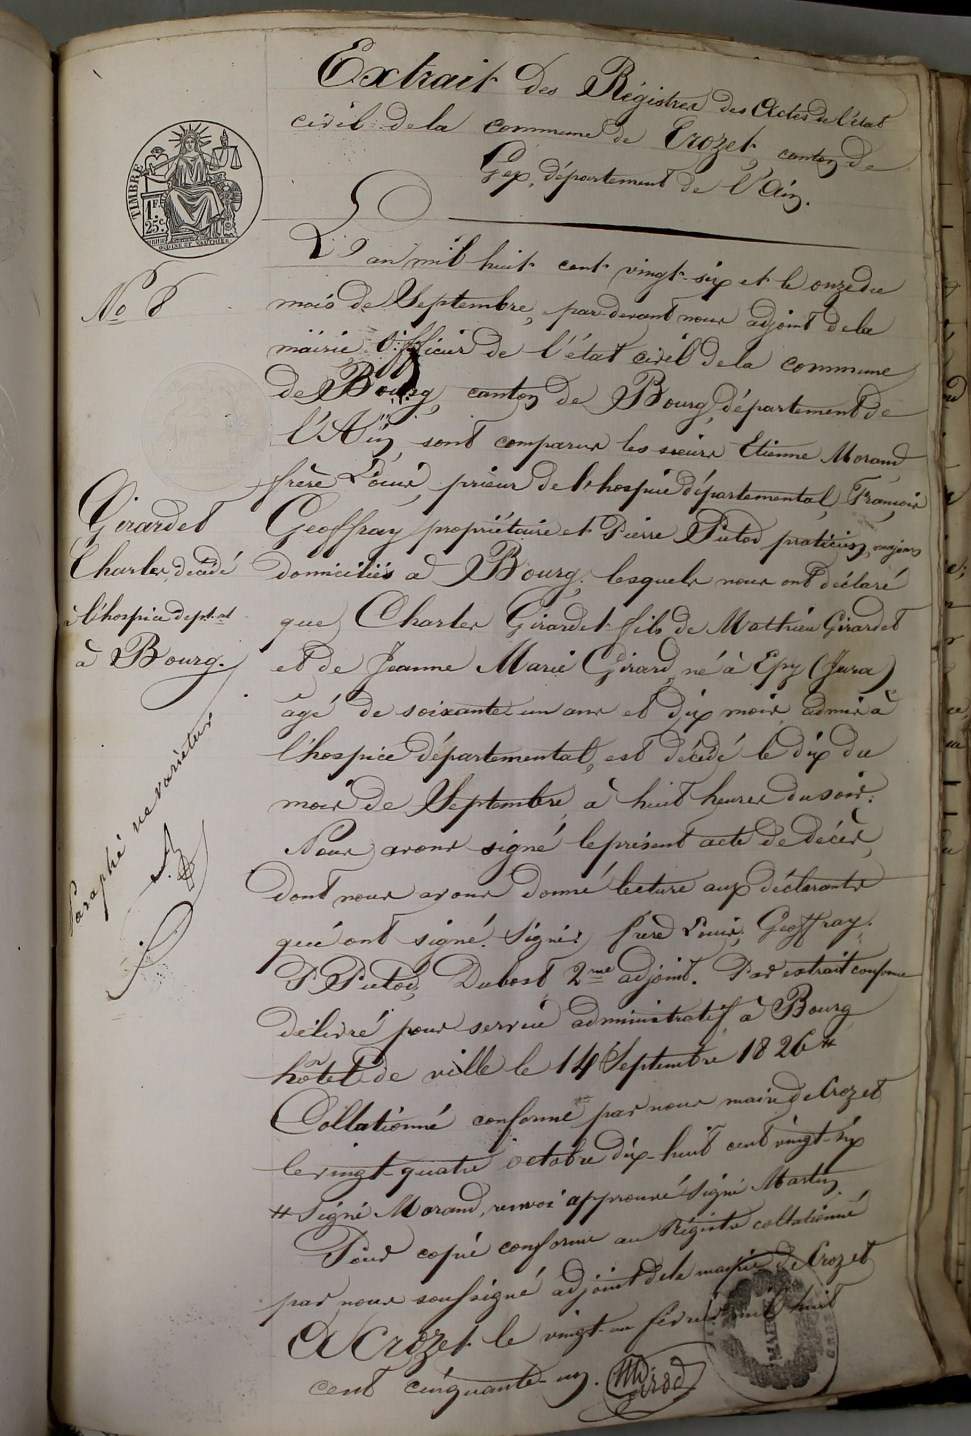 Extrait des Régistres des Actes de l'état
civil de la commune de Crozet, canton de
Gex, département de l'Ain.
TIMBRE
1 F.
25 c.
L'an mil huit cent vingt-six et le onze du
No 8
mois de Septembre, par-devant nous adjoint de la
mairie officier de l'état civil de la commune
de Bourg, canton de Bourg, département de
l'Ain, sont comparus les sieurs Etienne Morand
frère Louis, prieur de l'hospice départemental, François
Girardet
Charles, décédé
à l'hospice dept.al
à Bourg.
Geoffray propriétaire et Pierre Pietod praticien, majeurs
domiciliés à Bourg, lesquels nous ont déclaré
que Charles Girardet fils de Mathieu Girardet
et de Jeanne Marie Girard, né à Epy (Jura)
âgé de soixante un ans et dix mois, admis à
l'hospice départemental, est décédé le dix du
mois de Septembre à huit heures du soir.
Paraphé ne varietur
Nous avons signé le présent acte de décès,
dont nous avons donné lecture aux déclarants
qui ont signé. Signés frère Louis, Geoffray,
P. Pietod, Dubost 2me adjoint. Par extrait conforme
délivré pour service administratif à Bourg
hôtel de ville le 14 Septembre 1826 #
Collationné conforme par nous maire de Crozet
le vingt-quatre octobre dix-huit cent vingt-six
# Signé Morand, renvoi approuvé signé Martin
Pour copie conforme au Régistre collationné
par nous soussigné adjoint de la mairie de Crozet
A Crozet le vingt un février mil huit
cent cinquante-un. Girod
MAIRIE